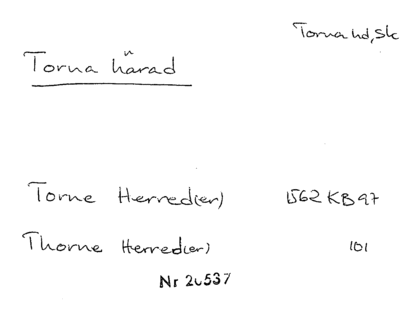 Torna hd, Sk
Torna härad
Torne Herred(er) 1562 KB 97
Thorne Herred(er) 101
Nr 20537